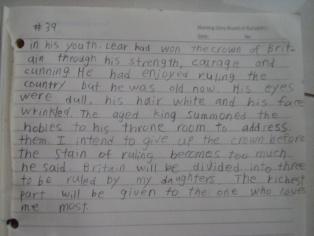 #39
in his youth. Lear had won the crown of Brit-
ain through his strength, courage and
cunning He had enjoyed ruling the
country but he was old now. His eyes
were dull, his hair white and his face
wrinkled. The aged king summoned the
nobles to his throne room to address
them. I intend to give up the crown before
the stain of ruling becomes too much
he said. Britain will be divided into three
to be ruled by my daughters The richest
part will be given to the one who loves
me most.